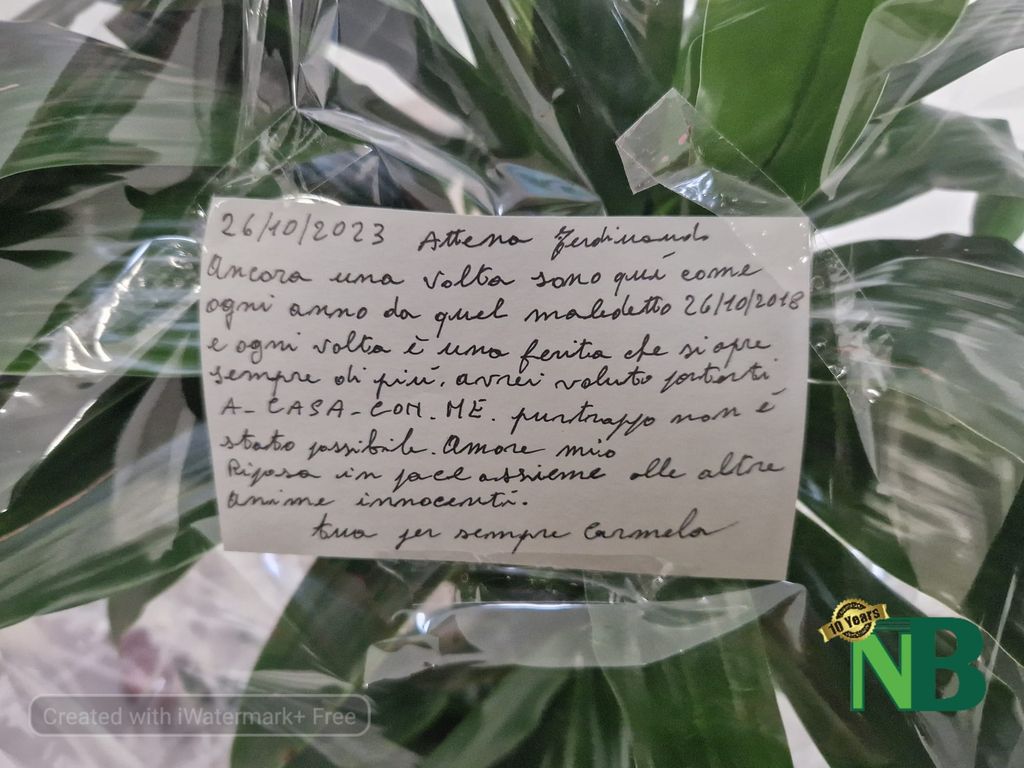 26/10/2023 Attena Ferdinando
Ancora una volta sono qui come
ogni anno da quel maledetto 26/10/2018
e ogni volta è una ferita che si apre
sempre di più. avrei voluto portarti
A-CASA-CON.ME. purtroppo non è
stato possibile. Amore mio
Riposa in pace assieme alle altre
anime innocenti.
tua per sempre Carmela
10 Years
NB
Created with iWatermark+ Free